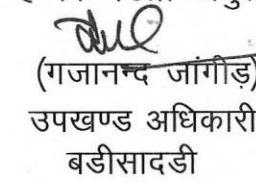 (गजानन्द जांगीड़)
उपखण्ड अधिकारी
बडीसादडी